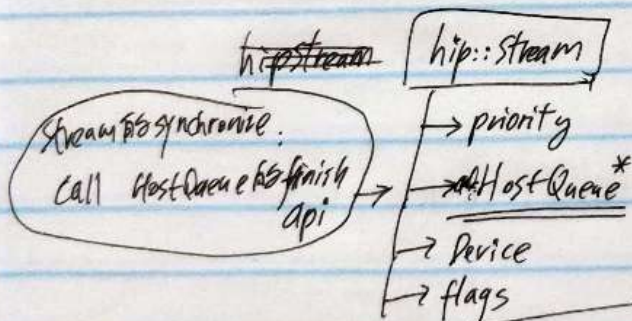 hipstream
hip::stream
stream的synchronize:
call HostQueue的finish
api
→ priority
→ HostQueue*
→ Device
→ flags